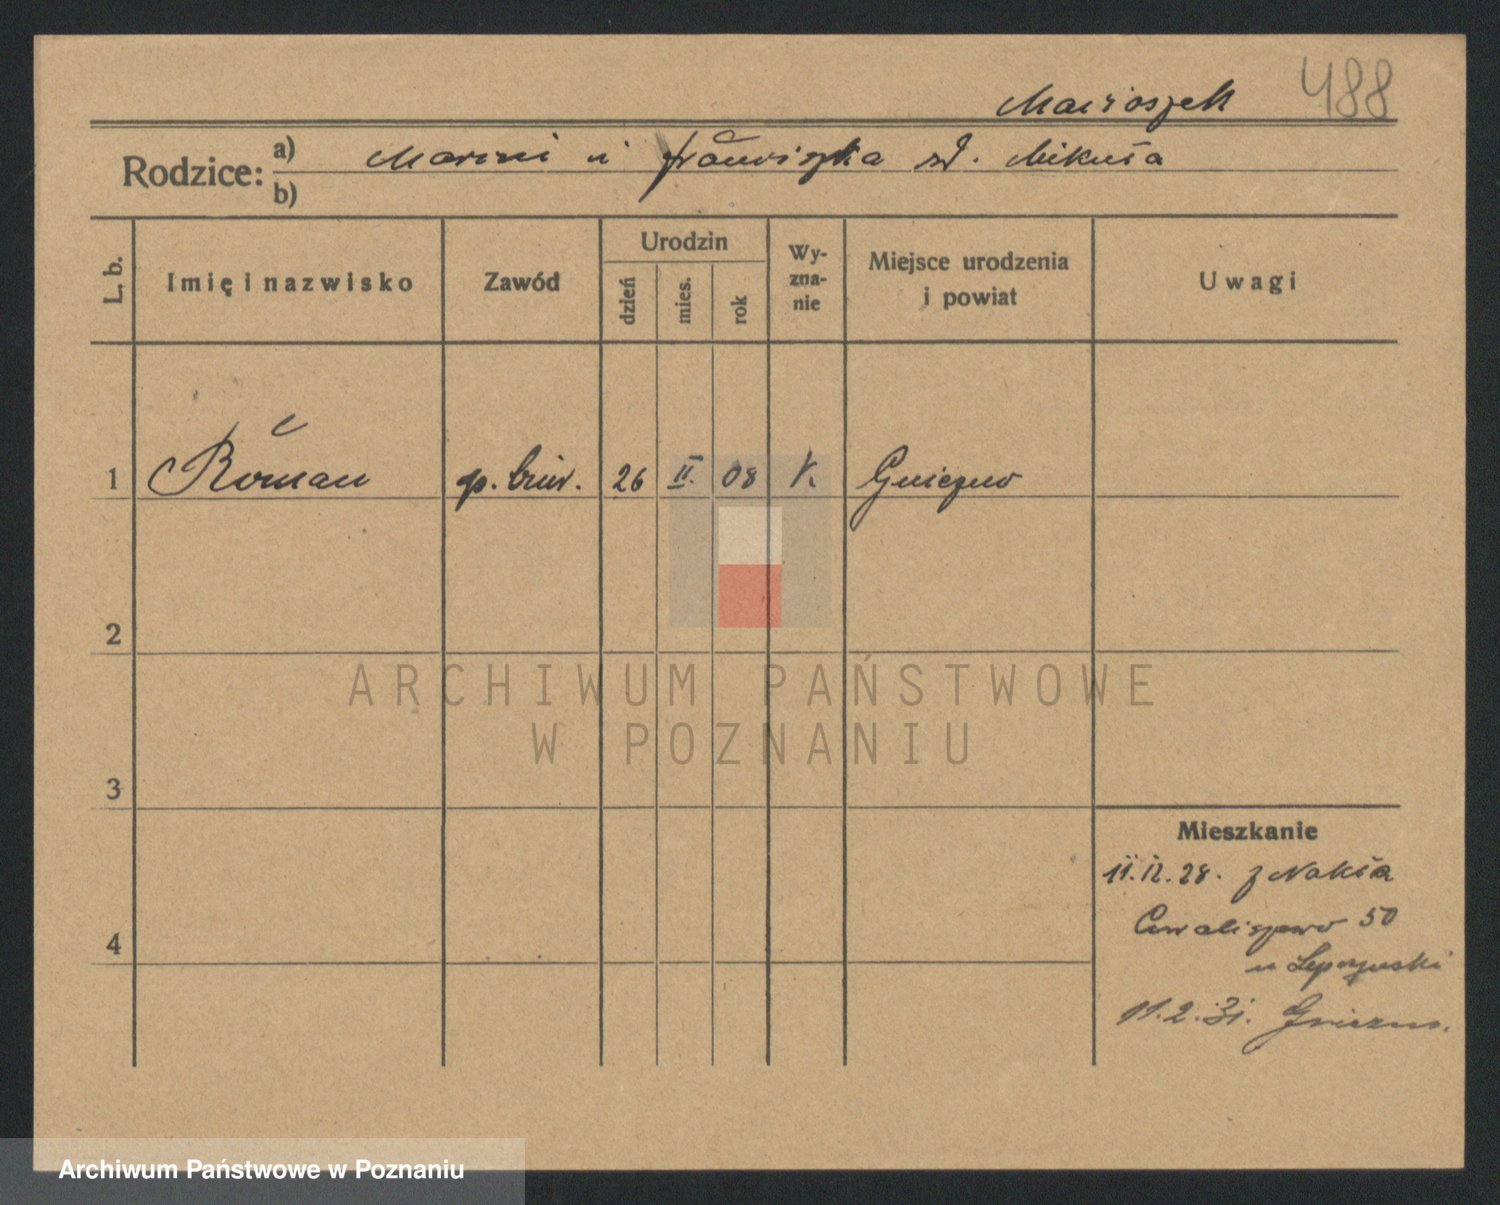 488
Rodzice: a)
Marcin i Franciszka zd. Mikuła
b)
L. b. Imię i nazwisko Zawód Urodzin dzień mies. rok Wy-zna-nie Miejsce urodzenia i powiat Uwagi
1 Roman p. biur. 26 II. 08 k. Gniezno
2
3
4
Mieszkanie
11.II.28. z Nakła
Chwaliszewo 50
11.2.31. Gniezno.
ARCHIWUM PAŃSTWOWE
W POZNANIU
Archiwum Państwowe w Poznaniu